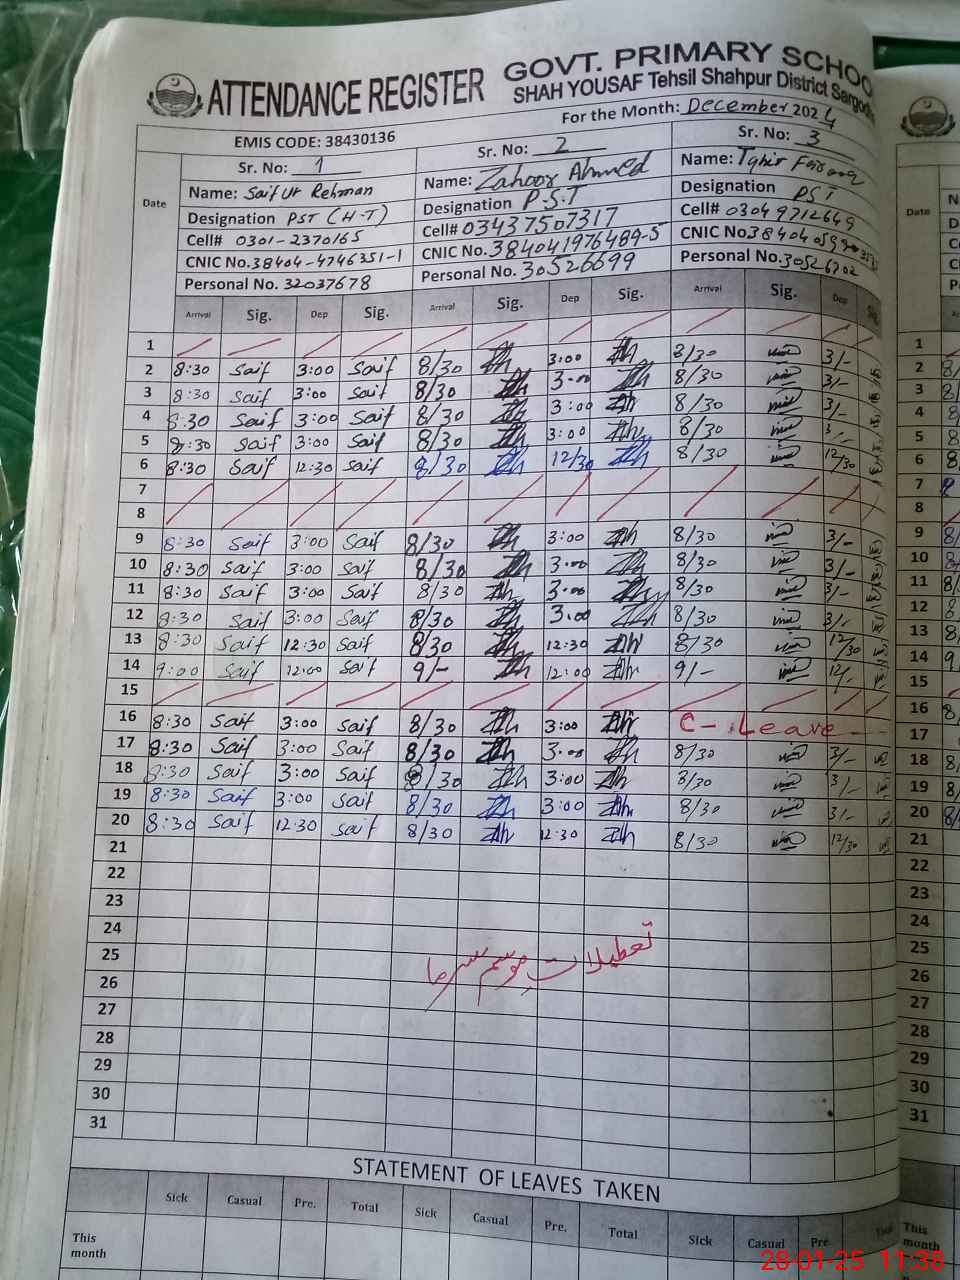 ATTENDANCE REGISTER
GOVT. PRIMARY SCHOO
SHAH YOUSAF Tehsil Shahpur District Sargodh
For the Month: December 2024
EMIS CODE: 38430136
Date
Sr. No: 1
Name: Saif Ur Rehman
Designation PST (H-T)
Cell# 0301-2370165
CNIC No. 38404-4746351-1
Personal No. 32037678
Sr. No: 2
Name: Zahoor Ahmed
Designation P.S.T
Cell# 03437507317
CNIC No. 384041976489-5
Personal No. 30526699
Sr. No: 3
Name: Tahir Farooq
Designation PST
Cell# 03049712649
CNIC No.
Personal No.
Arrival Sig. Dep Sig. Arrival Sig. Dep Sig. Arrival Sig. Dep Sig.
1
2 8:30 Saif 3:00 Saif 8/30 3:00 8/30 3/-
3 8:30 Saif 3:00 Saif 8/30 3:00 8/30 3/-
4 8:30 Saif 3:00 Saif 8/30 3:00 8/30 3/-
5 8:30 Saif 3:00 Saif 8/30 3:00 8/30 3/-
6 8:30 Saif 12:30 Saif 8/30 12/30 8/30 12/30
7
8
9 8:30 Saif 3:00 Saif 8/30 3:00 8/30 3/-
10 8:30 Saif 3:00 Saif 8/30 3:00 8/30 3/-
11 8:30 Saif 3:00 Saif 8/30 3:00 8/30 3/-
12 8:30 Saif 3:00 Saif 8/30 3:00 8/30 3/-
13 8:30 Saif 12:30 Saif 8/30 12:30 8/30 12/30
14 9:00 Saif 12:00 Saif 9/- 12:00 9/- 12/-
15
16 8:30 Saif 3:00 Saif 8/30 3:00 C-Leave
17 8:30 Saif 3:00 Saif 8/30 3:00 8/30 3/-
18 8:30 Saif 3:00 Saif 8/30 3:00 8/30 3/-
19 8:30 Saif 3:00 Saif 8/30 3:00 8/30 3/-
20 8:30 Saif 12:30 Saif 8/30 12:30 8/30 12/30
21
22
23
24
25
تعطیلات موسم سرما
26
27
28
29
30
31
STATEMENT OF LEAVES TAKEN
Sick Casual Pre. Total Sick Casual Pre. Total Sick Casual Pre Total
This month
Date
1
2
3
4
5
6
7
8
9
10
11
12
13
14
15
16
17
18
19
20
21
22
23
24
25
26
27
28
29
30
31
This month
28-01-25 11:38